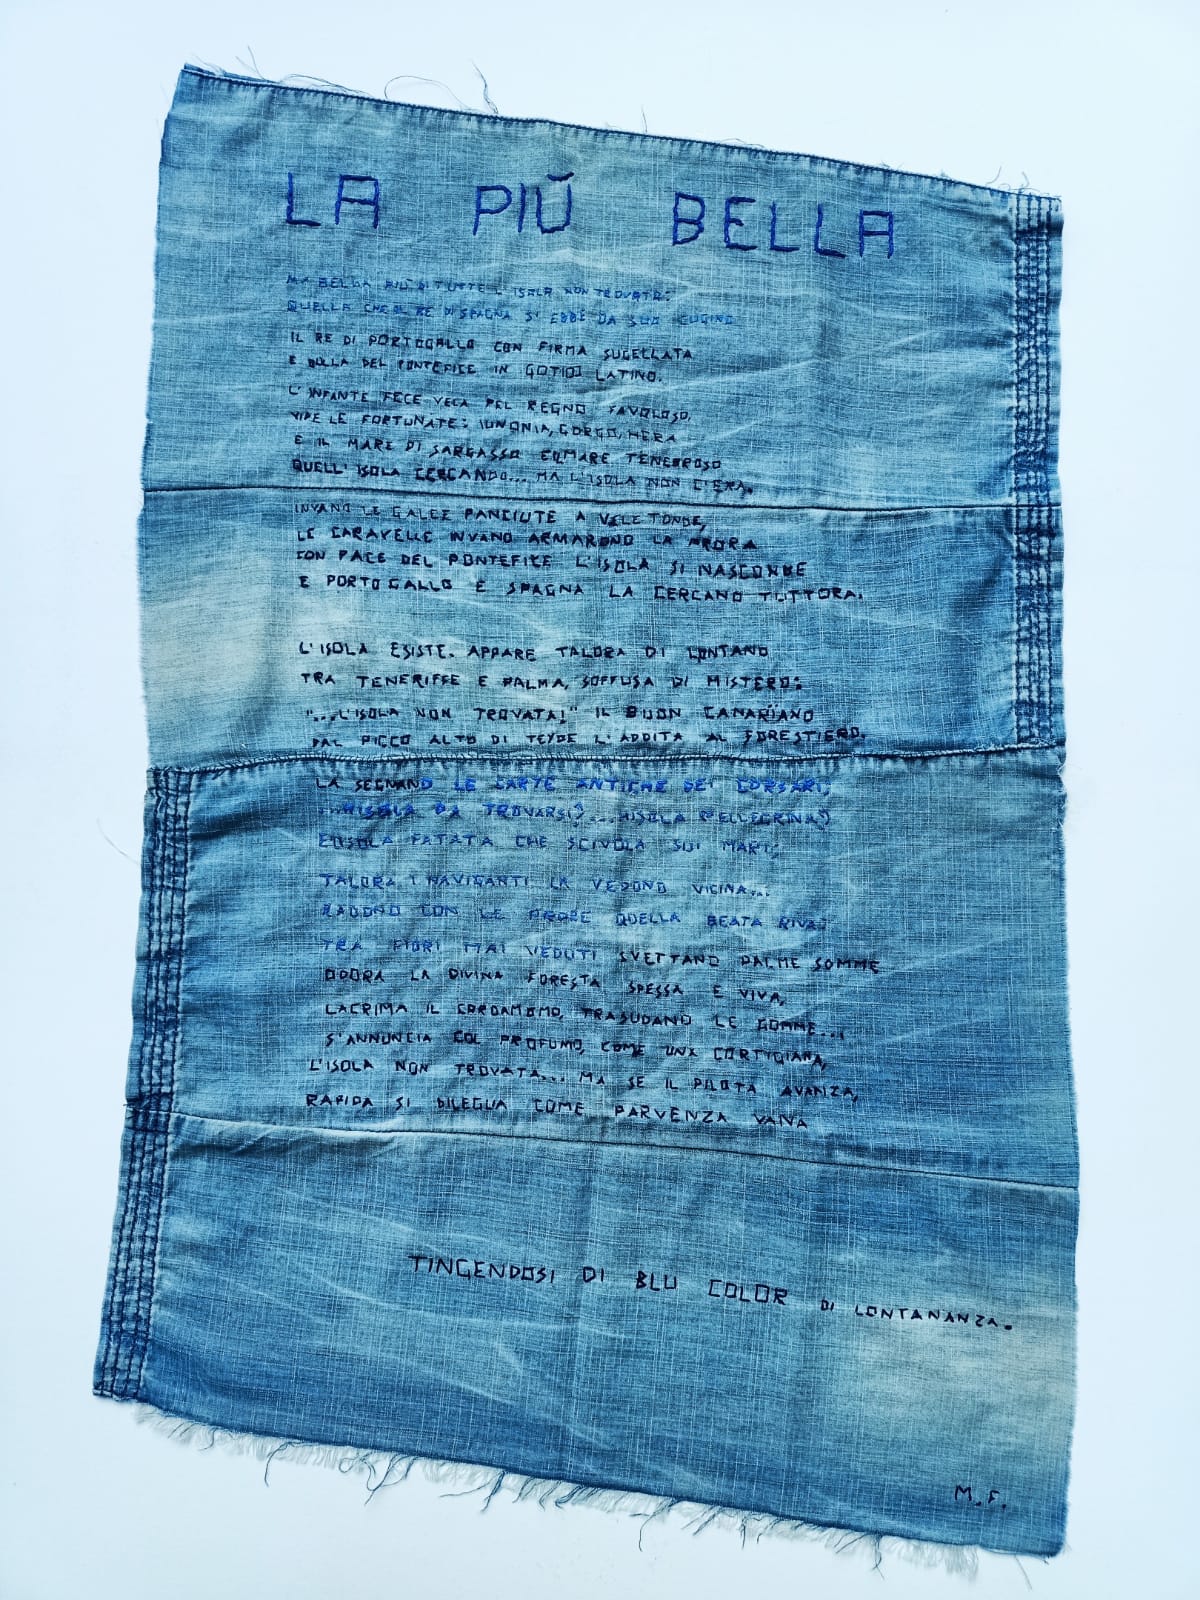 LA PIÙ BELLA
MA BELLA PIÙ DI TUTTE L'ISOLA NON TROVATA:
QUELLA CHE IL RE DI SPAGNA S' EBBE DA SUO CUGINO
IL RE DI PORTOGALLO CON FIRMA SUGELLATA
E BULLA DEL PONTEFICE IN GOTICO LATINO.
L'INFANTE FECE VELA PEL REGNO FAVOLOSO,
VIDE LE FORTUNATE: IUNONIA, GORGO, HERA
E IL MARE DI SARGASSO E IL MARE TENEBROSO
QUELL'ISOLA CERCANDO... MA L'ISOLA NON C'ERA.
INVANO LE GALEE PANCIUTE A VELE TONDE,
LE CARAVELLE INVANO ARMARONO LA PRORA
CON PACE DEL PONTEFICE L'ISOLA SI NASCONDE
E PORTOGALLO E SPAGNA LA CERCANO TUTTORA.
L'ISOLA ESISTE. APPARE TALORA DI LONTANO
TRA TENERIFFE E PALMA, SOFFUSA DI MISTERO:
"...L'ISOLA NON TROVATA!" IL BUON CANARÏANO
DAL PICCO ALTO DI TEYDE L'ADDITA AL FORESTIERO.
LA SEGNANO LE CARTE ANTICHE DEI CORSARI.
...HISOLA DA TROVARSI? ...HISOLA PELLEGRINA?
E' L'ISOLA FATATA CHE SCIVOLA SUI MARI;
TALORA I NAVIGANTI LA VEDONO VICINA...
RADONO CON LE PRORE QUELLA BEATA RIVA:
TRA FIORI MAI VEDUTI SVETTANO PALME SOMME
ODORA LA DIVINA FORESTA SPESSA E VIVA,
LACRIMA IL CARDAMOMO, TRASUDANO LE GOMME...
S'ANNUNCIA COL PROFUMO, COME UNA CORTIGIANA,
L'ISOLA NON TROVATA... MA SE IL PILOTA AVANZA,
RAPIDA SI DILEGUA COME PARVENZA VANA
TINGENDOSI DI BLU COLOR DI LONTANANZA.
M.F.